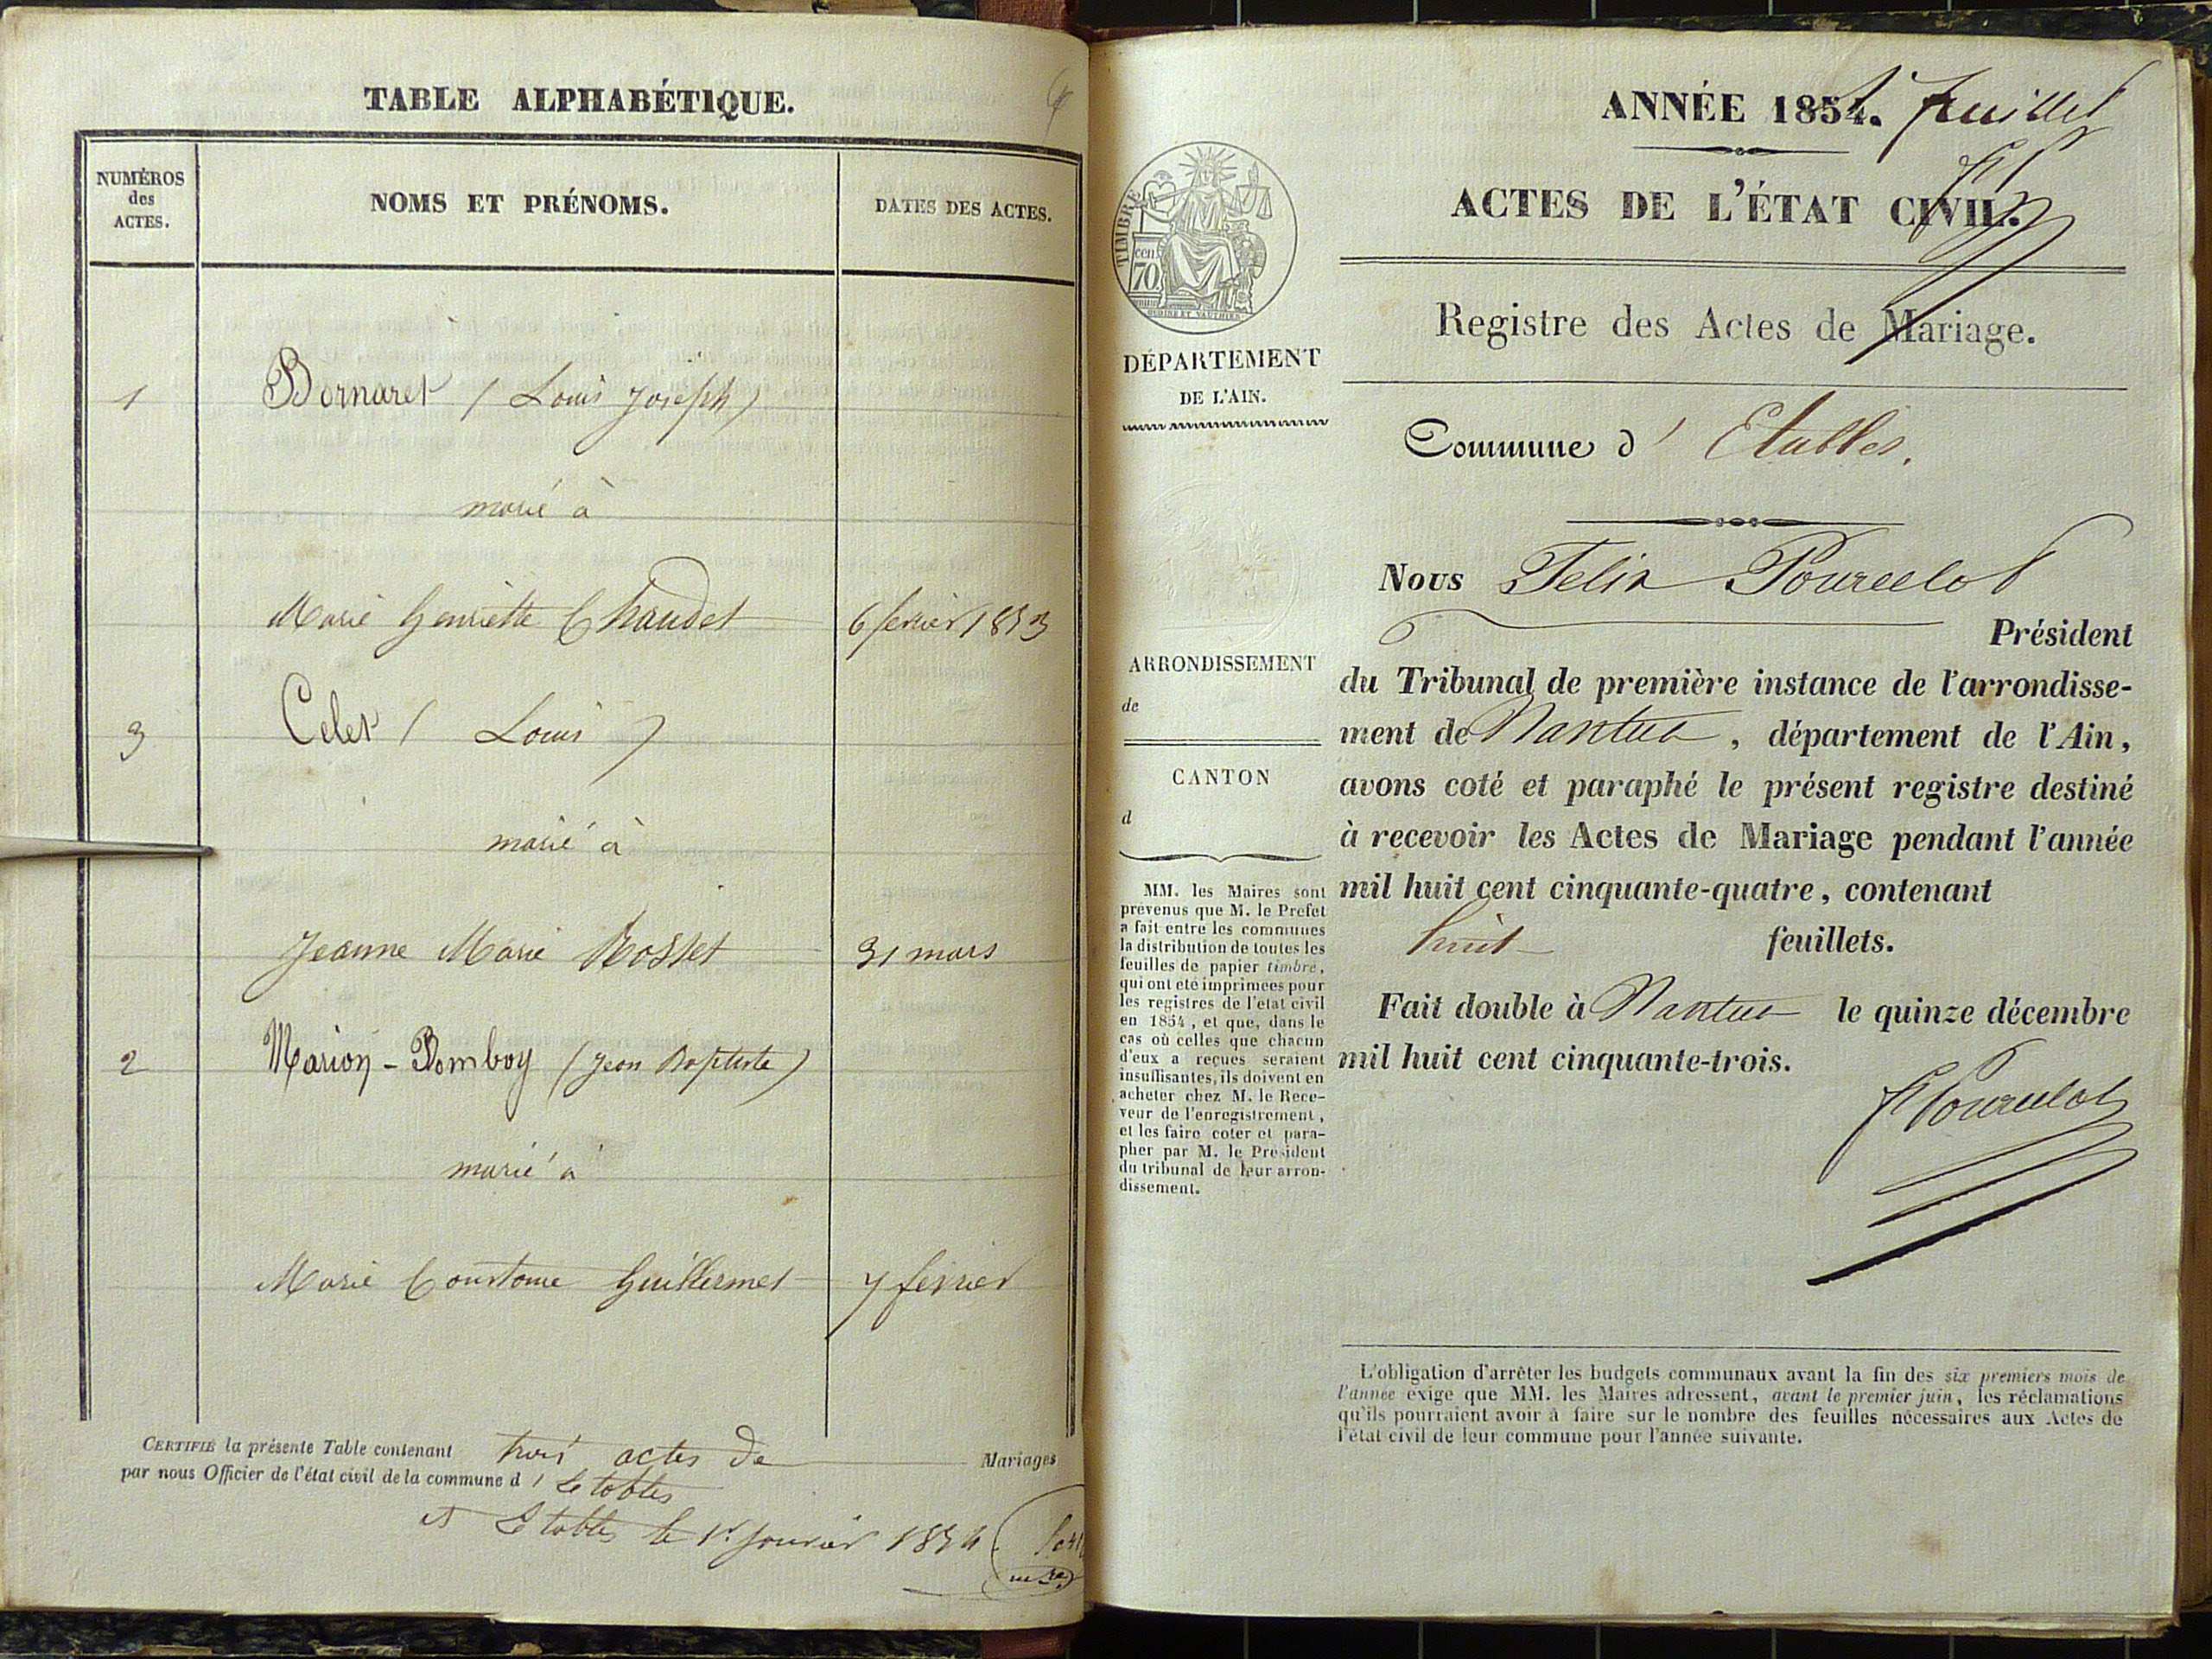 TABLE ALPHABÉTIQUE.
NUMÉROS
des
ACTES.
NOMS ET PRÉNOMS.
DATES DES ACTES.
1 Bornaret (Louis Joseph)
marié à
Marie henriette Chaudet 6 fevrier 1853
3 Celet (Louis)
marié à
Jeanne Marie Rosset 31 mars
2 Marion-Bomboy (Jean Baptiste)
marié à
Marie Guillermet 7 fevrier
CERTIFIÉ la présente Table contenant trois actes de Mariages
par nous Officier de l'état civil de la commune d' Etables
Etables le 1er janvier 1854
ANNÉE 1854.
1er feuillet
ACTES DE L'ÉTAT CIVIL.
Registre des Actes de Mariage.
TIMBRE
70 cen.
OUDINE ET VAUTHIER
DÉPARTEMENT
DE L'AIN.
Commune d' Etables.
Nous Felix Pourcelot
Président
ARRONDISSEMENT
de
CANTON
d
du Tribunal de première instance de l'arrondisse-
ment de Nantua, département de l'Ain,
avons coté et paraphé le présent registre destiné
à recevoir les Actes de Mariage pendant l'année
mil huit cent cinquante-quatre, contenant
huit feuillets.
Fait double à Nantua le quinze décembre
mil huit cent cinquante-trois.
F Pourcelot
MM. les Maires sont
prévenus que M. le Préfet
a fait entre les communes
la distribution de toutes les
feuilles de papier timbré,
qui ont été imprimées pour
les registres de l'état civil
en 1854, et que, dans le
cas où celles que chacun
d'eux a reçues seraient
insuffisantes, ils doivent en
acheter chez M. le Rece-
veur de l'enregistrement,
et les faire coter et para-
pher par M. le Président
du tribunal de leur arron-
dissement.
L'obligation d'arrêter les budgets communaux avant la fin des six premiers mois de
l'année exige que MM. les Maires adressent, avant le premier juin, les réclamations
qu'ils pourraient avoir à faire sur le nombre des feuilles nécessaires aux Actes de
l'état civil de leur commune pour l'année suivante.